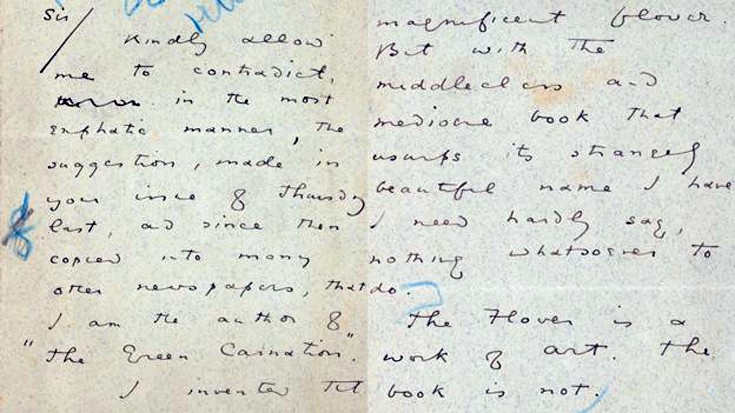 Sir/
Kindly allow
me to contradict,
in the most
emphatic manner, the
suggestion, made in
your issue of Thursday
last, and since then
copied into many
other newspapers, that
I am the author of
"The Green Carnation".
I invented that
magnificent flower.
But with the
middleclass and
mediocre book that
usurps its strangely
beautiful name I have
I need hardly say,
nothing whatsoever to
do.
The Flower is a
work of art. The
book is not.